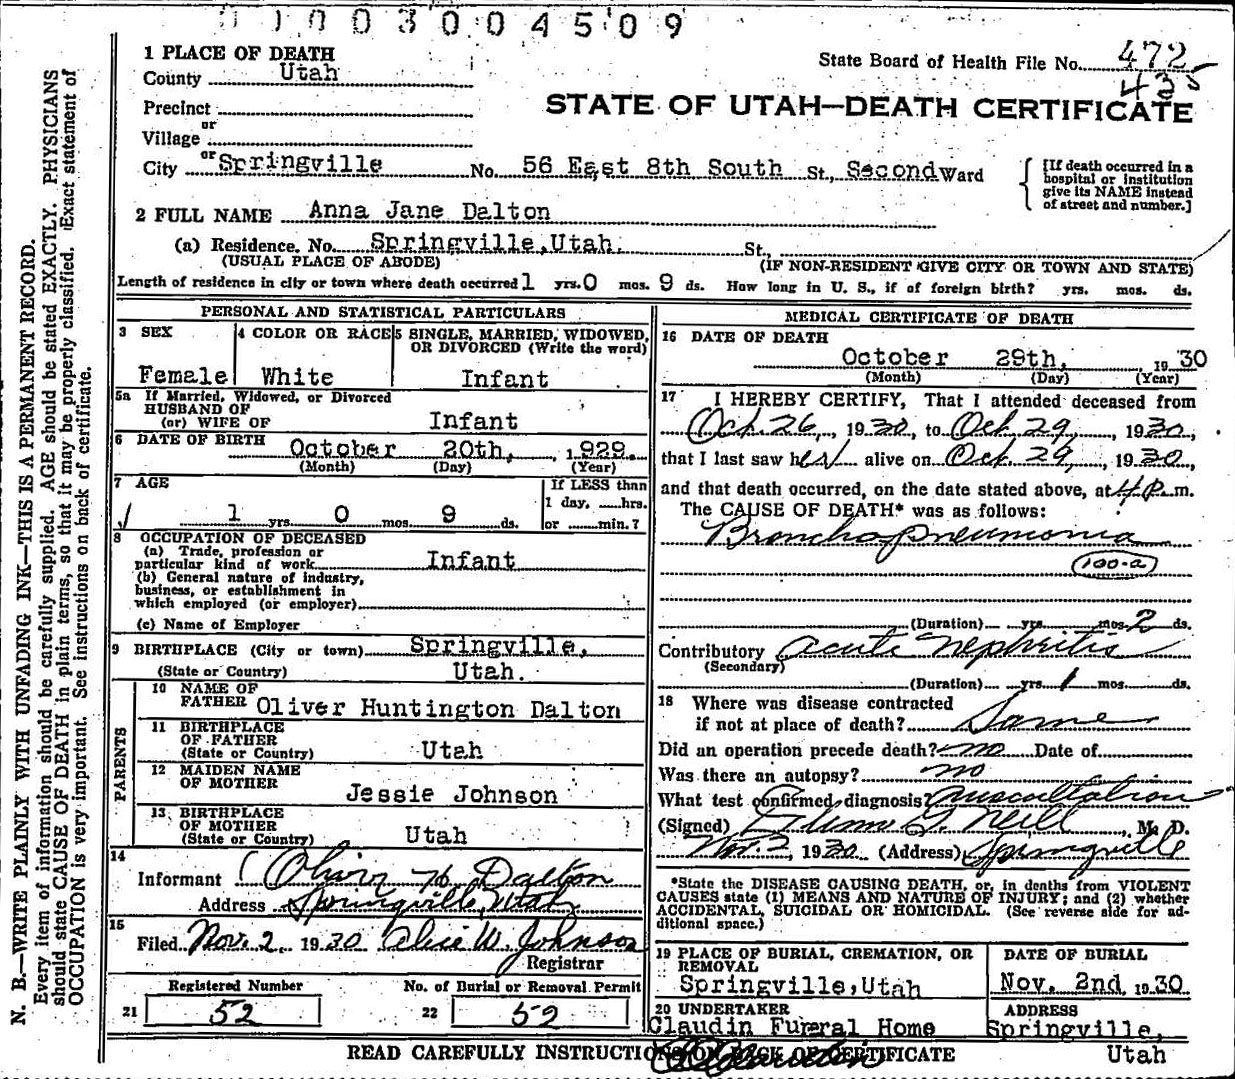 003004509
1 PLACE OF DEATH
County Utah
State Board of Health File No. 472
435
Precinct
STATE OF UTAH—DEATH CERTIFICATE
or
Village
or
City Springville No. 56 East 8th South St., Second Ward
[If death occurred in a hospital or institution give its NAME instead of street and number.]
2 FULL NAME Anna Jane Dalton
(a) Residence. No. Springville,Utah. St.,
(USUAL PLACE OF ABODE) (IF NON-RESIDENT GIVE CITY OR TOWN AND STATE)
Length of residence in city or town where death occurred 1 yrs. 0 mos. 9 ds. How long in U. S., if of foreign birth? yrs. mos. ds.
PERSONAL AND STATISTICAL PARTICULARS
3 SEX 4 COLOR OR RACE 5 SINGLE, MARRIED, WIDOWED, OR DIVORCED (Write the word)
Female White Infant
5a If Married, Widowed, or Divorced
HUSBAND OF
(or) WIFE OF Infant
6 DATE OF BIRTH October 20th, 1929.
(Month) (Day) (Year)
7 AGE If LESS than
1 day, ......hrs.
1 yrs. 0 mos. 9 ds. or ......min.?
8 OCCUPATION OF DECEASED
(a) Trade, profession or
particular kind of work Infant
(b) General nature of industry,
business, or establishment in
which employed (or employer)
(c) Name of Employer
9 BIRTHPLACE (City or town) Springville,
(State or Country) Utah.
PARENTS
10 NAME OF
FATHER Oliver Huntington Dalton
11 BIRTHPLACE
OF FATHER
(State or Country) Utah
12 MAIDEN NAME
OF MOTHER
Jessie Johnson
13 BIRTHPLACE
OF MOTHER
(State or Country) Utah
14
Informant Oliver H. Dalton
Address Springville, Utah
15
Filed Nov. 2 1930 Alice W. Johnson
Registrar
Registered Number No. of Burial or Removal Permit
21 52 22 52
MEDICAL CERTIFICATE OF DEATH
16 DATE OF DEATH
October 29th, 1930
(Month) (Day) (Year)
17 I HEREBY CERTIFY, That I attended deceased from
Oct. 26, 1930, to Oct 29, 1930,
that I last saw her alive on Oct 29, 1930,
and that death occurred, on the date stated above, at 4 P. m.
The CAUSE OF DEATH* was as follows:
Bronchopneumonia
100-a
(Duration) yrs. mos. 2 ds.
Contributory acute nephritis
(Secondary)
(Duration) yrs. 1 mos. ds.
18 Where was disease contracted
if not at place of death? Same
Did an operation precede death? no Date of
Was there an autopsy? no
What test confirmed diagnosis? Auscultation
(Signed) G. Neill, M. D.
Nov. 2, 1930 (Address) Springville
*State the DISEASE CAUSING DEATH, or, in deaths from VIOLENT
CAUSES state (1) MEANS AND NATURE OF INJURY; and (2) whether
ACCIDENTAL, SUICIDAL OR HOMICIDAL. (See reverse side for ad-
ditional space.)
19 PLACE OF BURIAL, CREMATION, OR REMOVAL DATE OF BURIAL
Springville,Utah Nov. 2nd 1930
20 UNDERTAKER ADDRESS
Claudin Funeral Home Springville,
Utah
READ CAREFULLY INSTRUCTIONS ON BACK OF CERTIFICATE
N. B.—WRITE PLAINLY WITH UNFADING INK—THIS IS A PERMANENT RECORD.
Every item of information should be carefully supplied. AGE should be stated EXACTLY. PHYSICIANS
should state CAUSE OF DEATH in plain terms, so that it may be properly classified. Exact statement of
OCCUPATION is very important. See instructions on back of certificate.